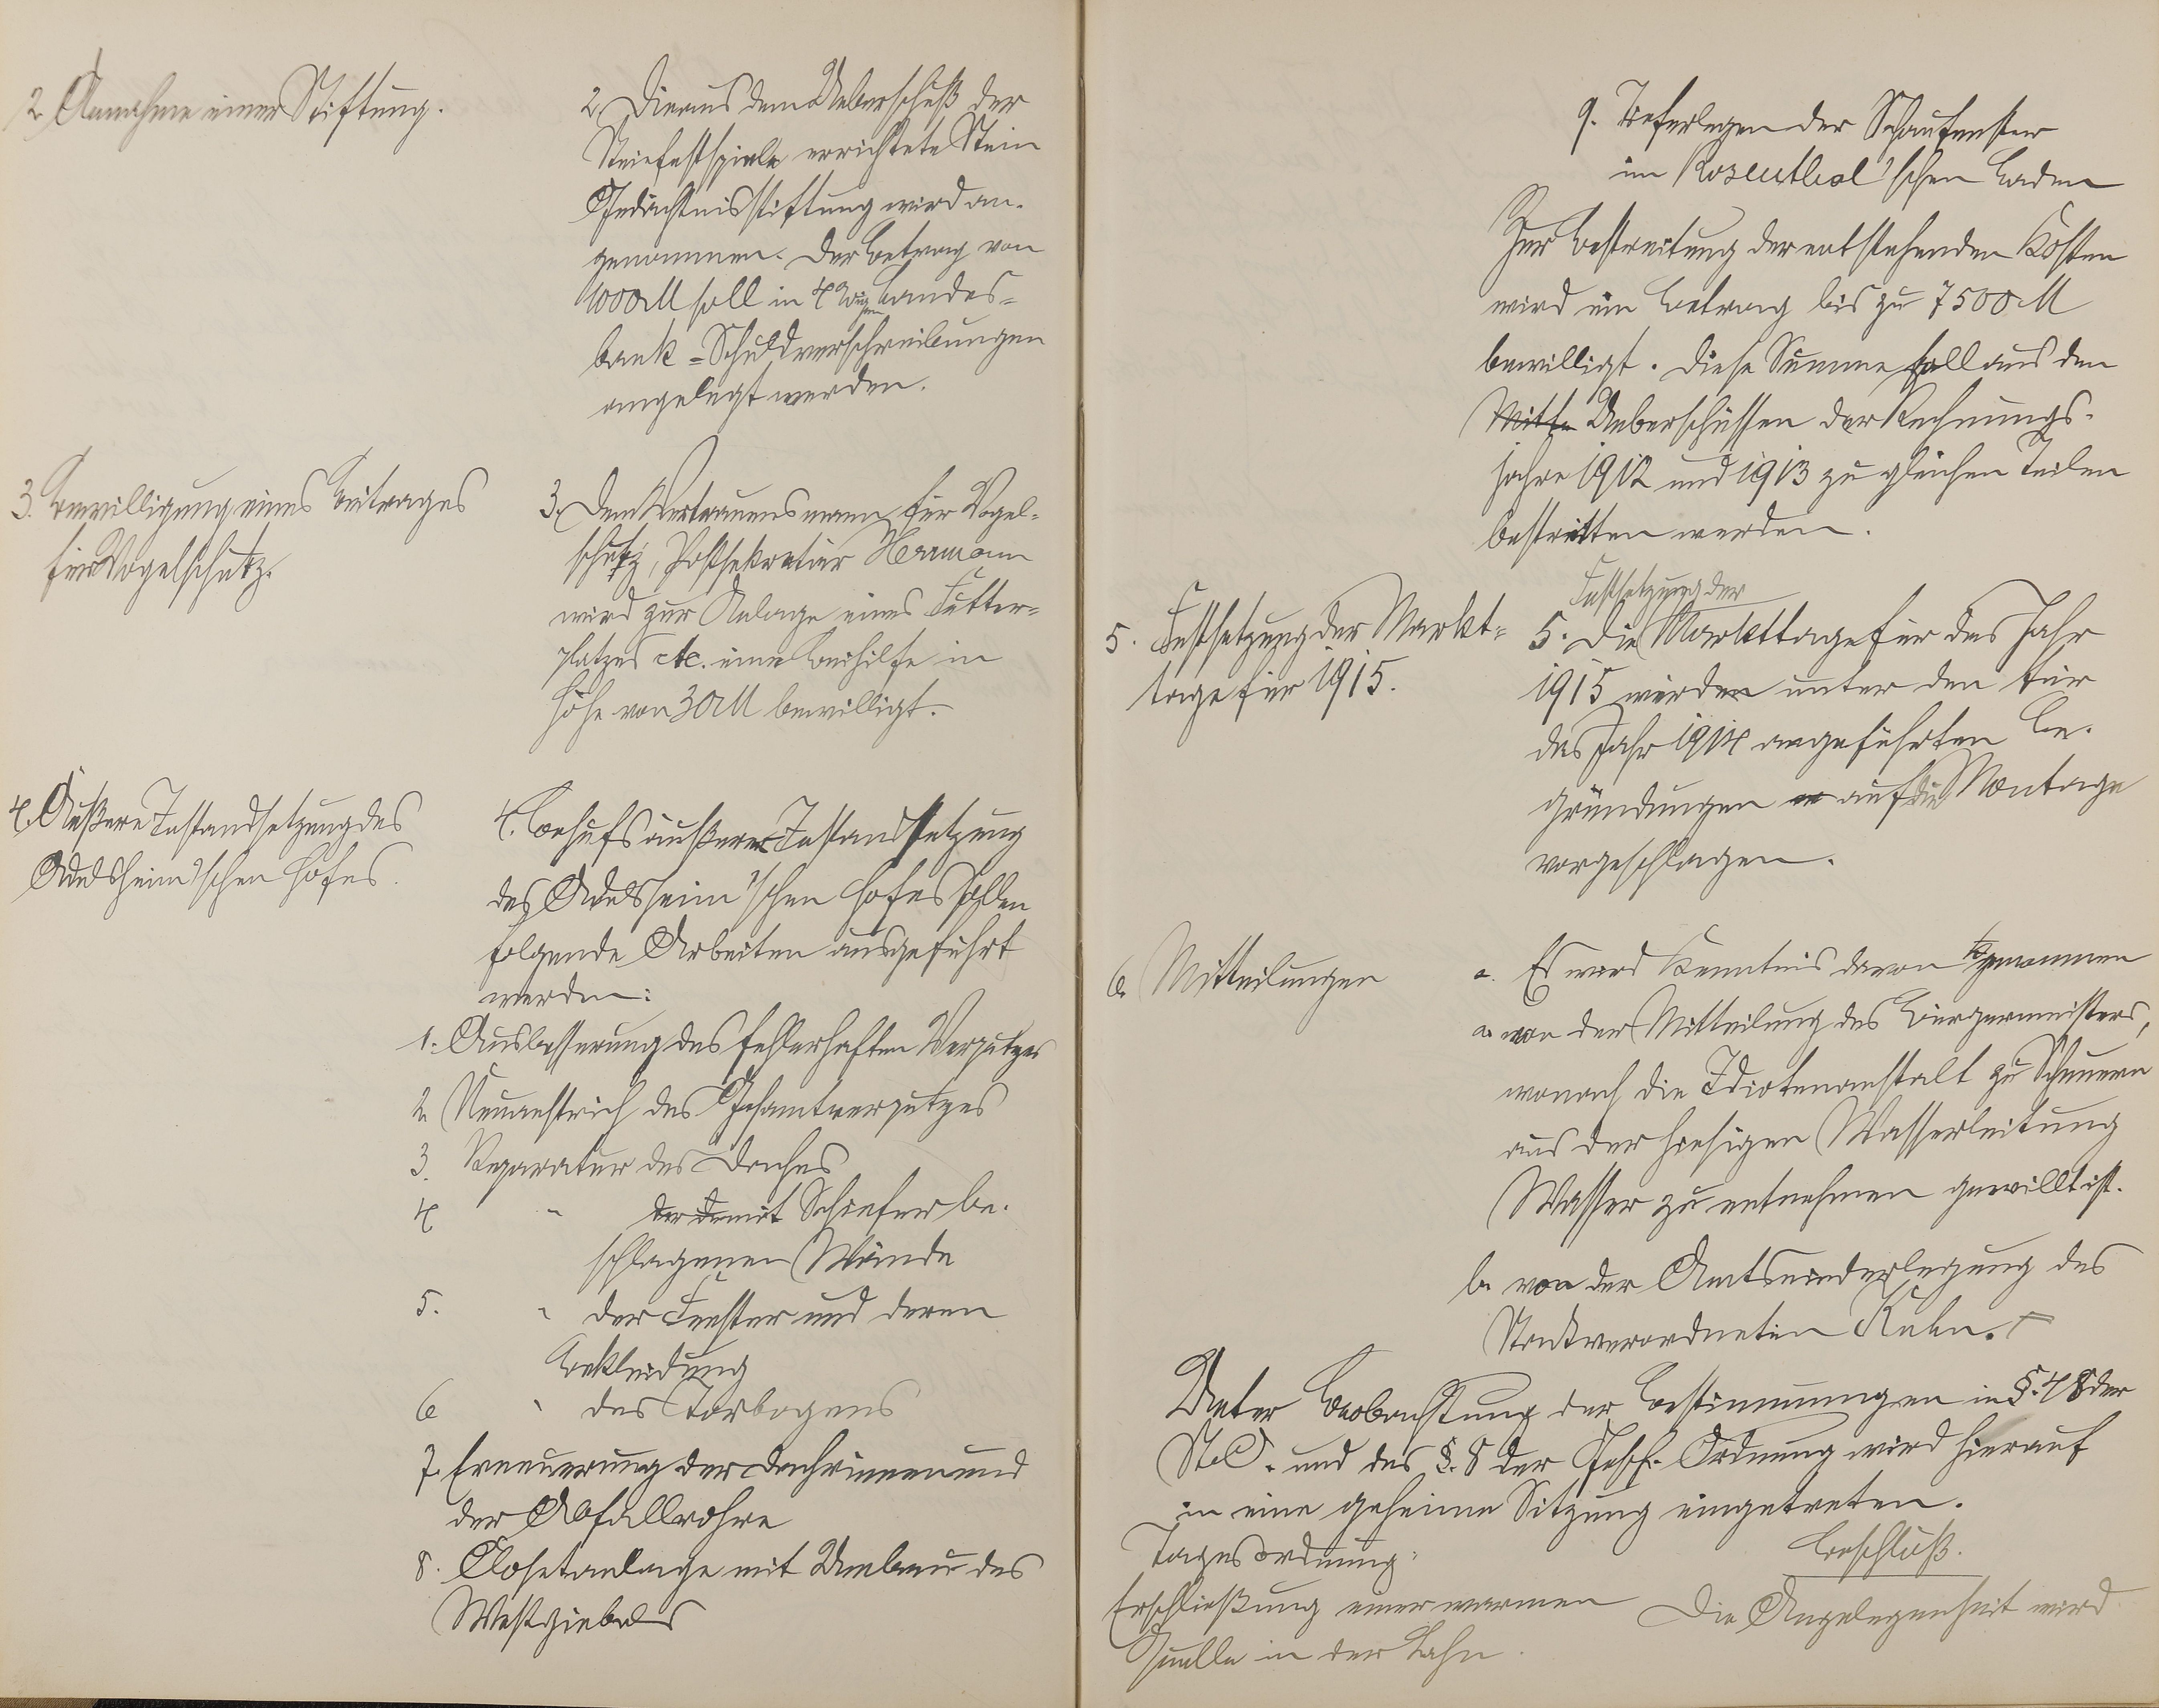 2. Annahme einer Stiftung.
2. Die aus dem Ueberschuß der
Steinfestspiele errichtete Stein
Gedächtnisstiftung wird an-
genommen. Der Betrag von
1000 M soll in 4 %igen Landes-
bank-Schuldverschreibungen
angelegt werden.
3. Bewilligung eines Beitrages
für Vogelschutz.
3. Dem Vertrauensmann für Vogel-
schutz, Postsekretär Hermann
wird zur Anlage eines Futter-
platzes etc. eine Beihilfe in
Höhe von 30 M bewilligt.
4. Äußere Instandsetzung des
Adelsheim'schen Hofes.
4. Behufs äußerer Instandsetzung
des Adelsheim'schen Hofes sollen
folgende Arbeiten ausgeführt
werden:
1. Ausbesserung des fehlerhaften Verputzes
2. Neuanstrich des Gesamtverputzes
3. Reparatur des Daches
4 " der mit Schiefer be-
schlagenen Wände
5. " der Fenster und deren
Bekleidung
6 " des Torbogens
7. Erneuerung der Dachrinnen und
der Abfallrohre
8. Closetanlage mit Umbau des
Westgiebels
9. Tieferlegen der Schaufenster
im Rosenthal'schen Laden
Zur Bestreitung der entstehenden Kosten
wird ein Betrag bis zu 7500 M
bewilligt. Diese Summe soll aus den
Ueberschüssen der Rechnungs-
jahre 1912 und 1913 zu gleichen Teilen
bestritten werden.
5. Festsetzung der Markt-
tage für 1915.
Festsetzung der
5. Die Markttage für das Jahr
1915 werden unter den für
das Jahr 1914 angeführten Be-
gründungen auf die Montage
vorgeschlagen.
6. Mitteilungen
a. Es wird Kenntnis davon genommen
a. von der Mitteilung des Bürgermeisters,
wonach die Idiotenanstalt zu Scheuern
aus der hiesigen Wasserleitung
Wasser zu entnehmen gewillt ist.
b. von der Amtsniederlegung des
Stadtverordneten Kuhn.
Unter Beobachtung der Bestimmungen in §. 48 der
St.O. und des §. 8 der Gesch.-Ordnung wird hierauf
in eine geheime Sitzung eingetreten.
Tagesordnung:
Beschluß.
Erschließung einer warmen
Quelle in der Lahn.
Die Angelegenheit wird